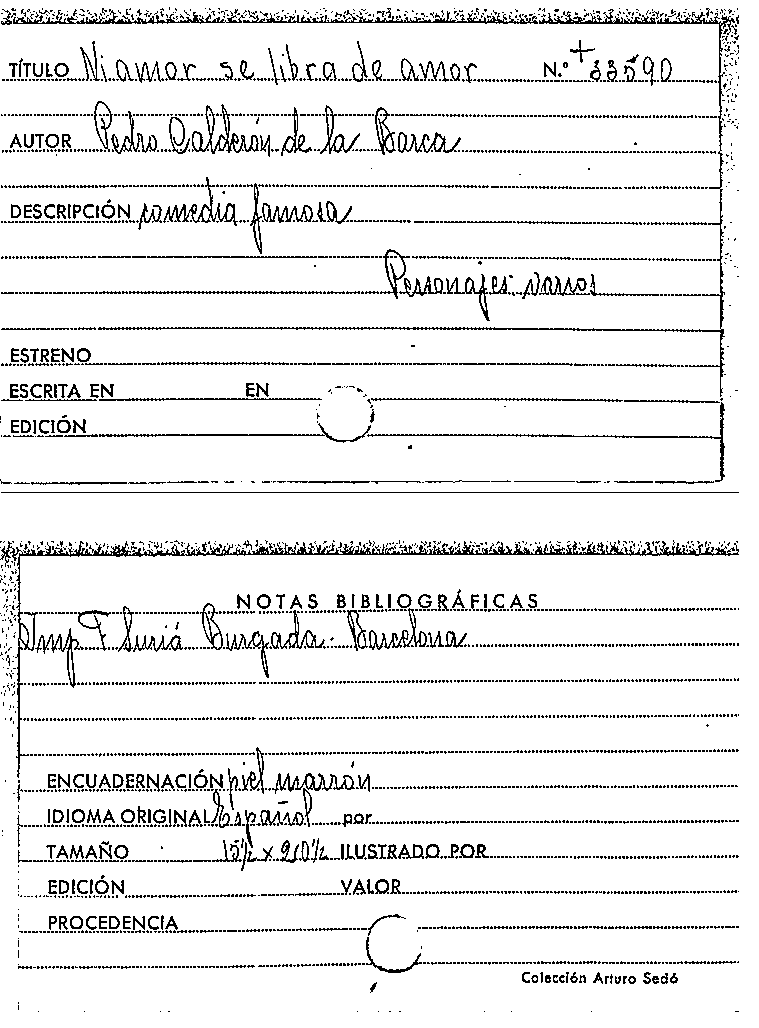 TÍTULO Ni amor se libra de amor N.º + 33590
AUTOR Pedro Calderón de la Barca
DESCRIPCIÓN comedia famosa
Personajes varios
ESTRENO
ESCRITA EN EN
EDICIÓN
NOTAS BIBLIOGRÁFICAS
Imp F Suriá Burgada. Barcelona
ENCUADERNACIÓN piel marrón
IDIOMA ORIGINAL Español por
TAMAÑO 15½ x ILUSTRADO POR
EDICIÓN VALOR
PROCEDENCIA
Colección Arturo Sedó